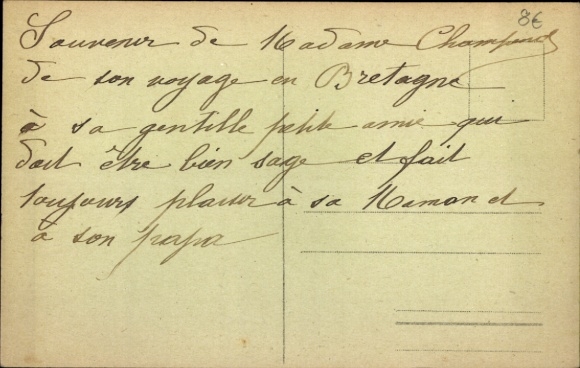 8€
Souvenir de Madame
de son voyage en Bretagne
à sa gentille petite amie qui
doit être bien sage et fait
toujours plaisir à sa Maman et
à son papa